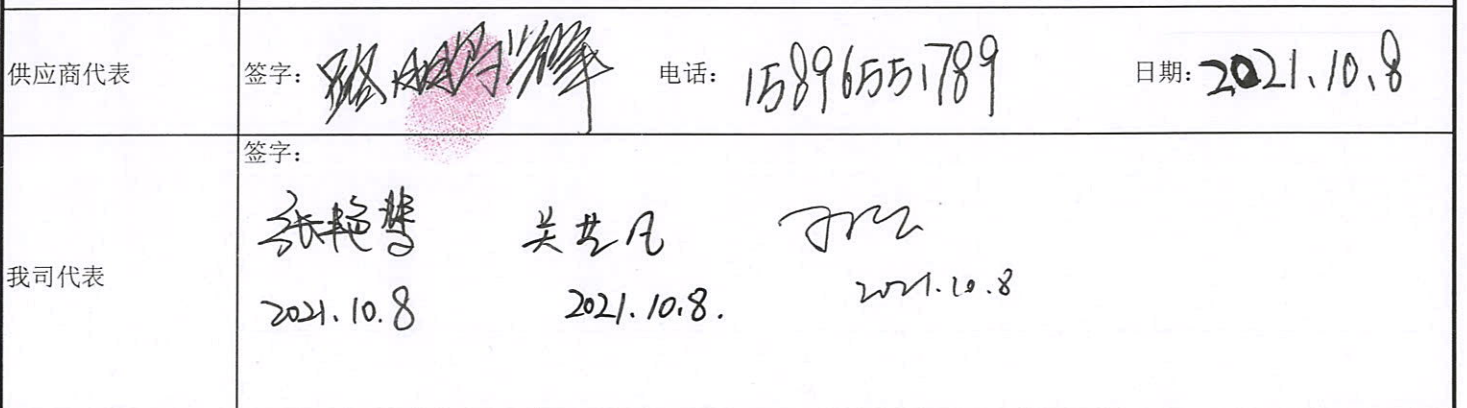 供应商代表 签字： 电话：15896551789 日期：2021.10.8
签字：
张艳慧
我司代表
2021.10.8 2021.10.8. 2021.10.8